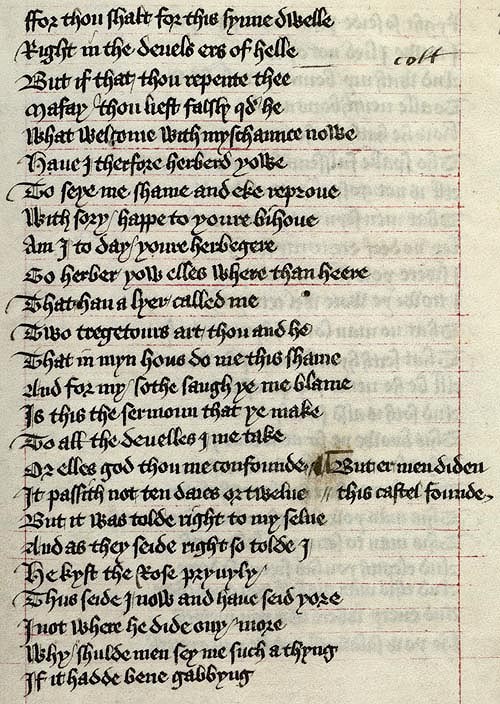 ffor thou shalt for this synne dwelle
Right in the deuels ers of helle
colt
But if that thou repente thee
Mafay / thou liest falsly qd he
What welcome with myschaunce nowe
Haue I therfore herberd yowe
To seye me shame and eke reproue
With sory / happe to youre bihoue
Am I to day / youre herbegere
Go herber yow elles where than heere
That han a lyer / called me
Two tregetours art / thou and he
That in myn hous do me this shame
And for my / sothe saugh ye me blame
Is this the sermoun that ye make
To all the deuelles I me take
Or elles god thou me confounde / But er men diden
It passith not ten daies or twelue // this castel founde
But it was tolde right to my selue
And as they seide right so tolde I
He kyst the Rose pryuyly /
Thus seide I now and haue seid yore
I not where he dide ony / more
Why / shulde men sey me such a thyng
If it hadde bene gabbyng